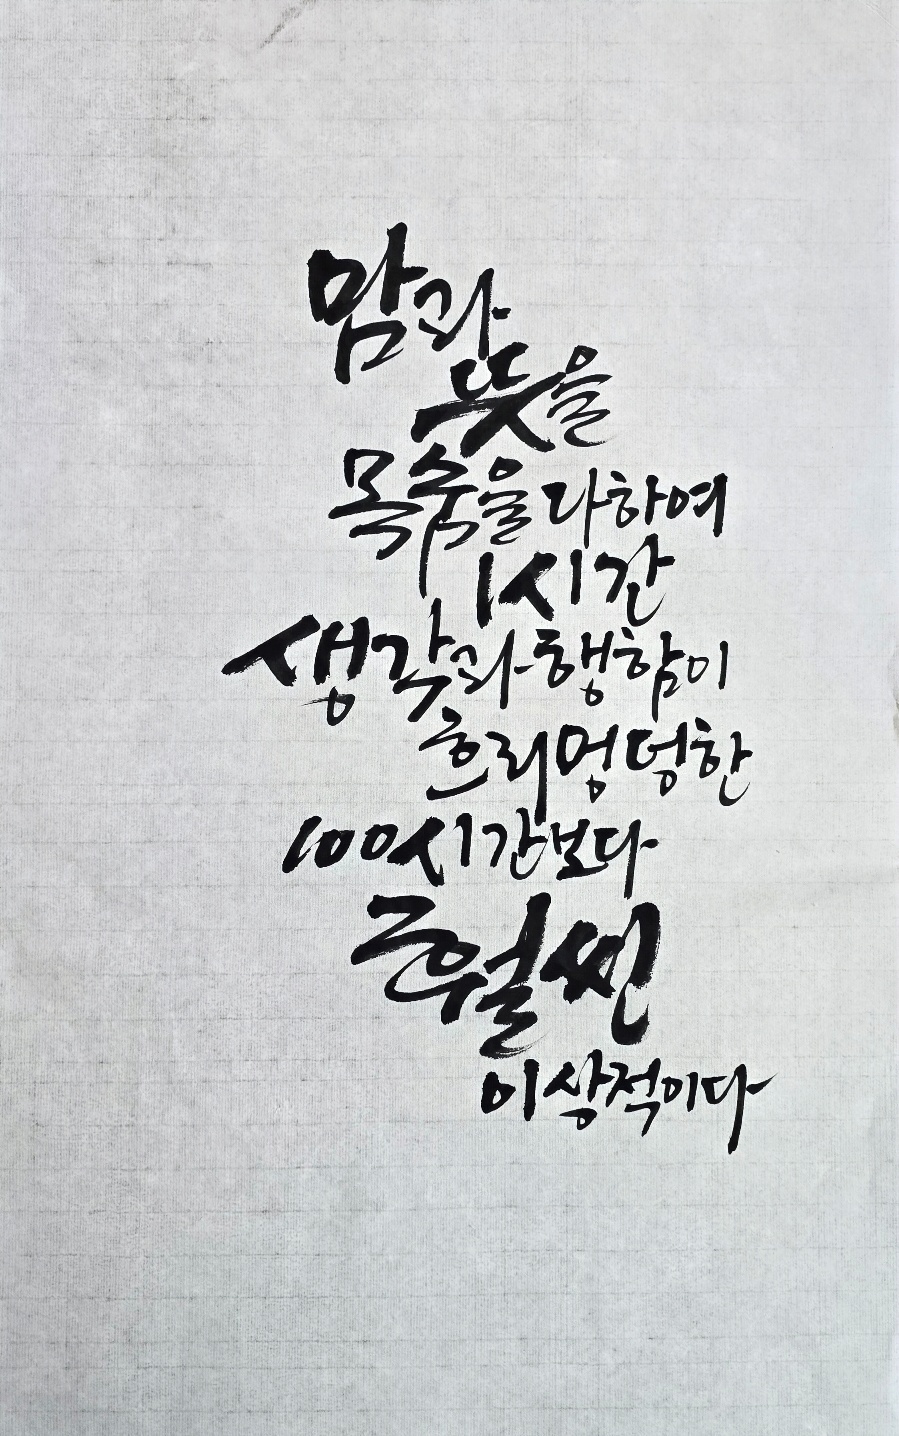 맘과
뜻을
목숨을 다하여
1시간
생각과 행함이
흐리멍덩한
100시간보다
훨씬
이상적이다